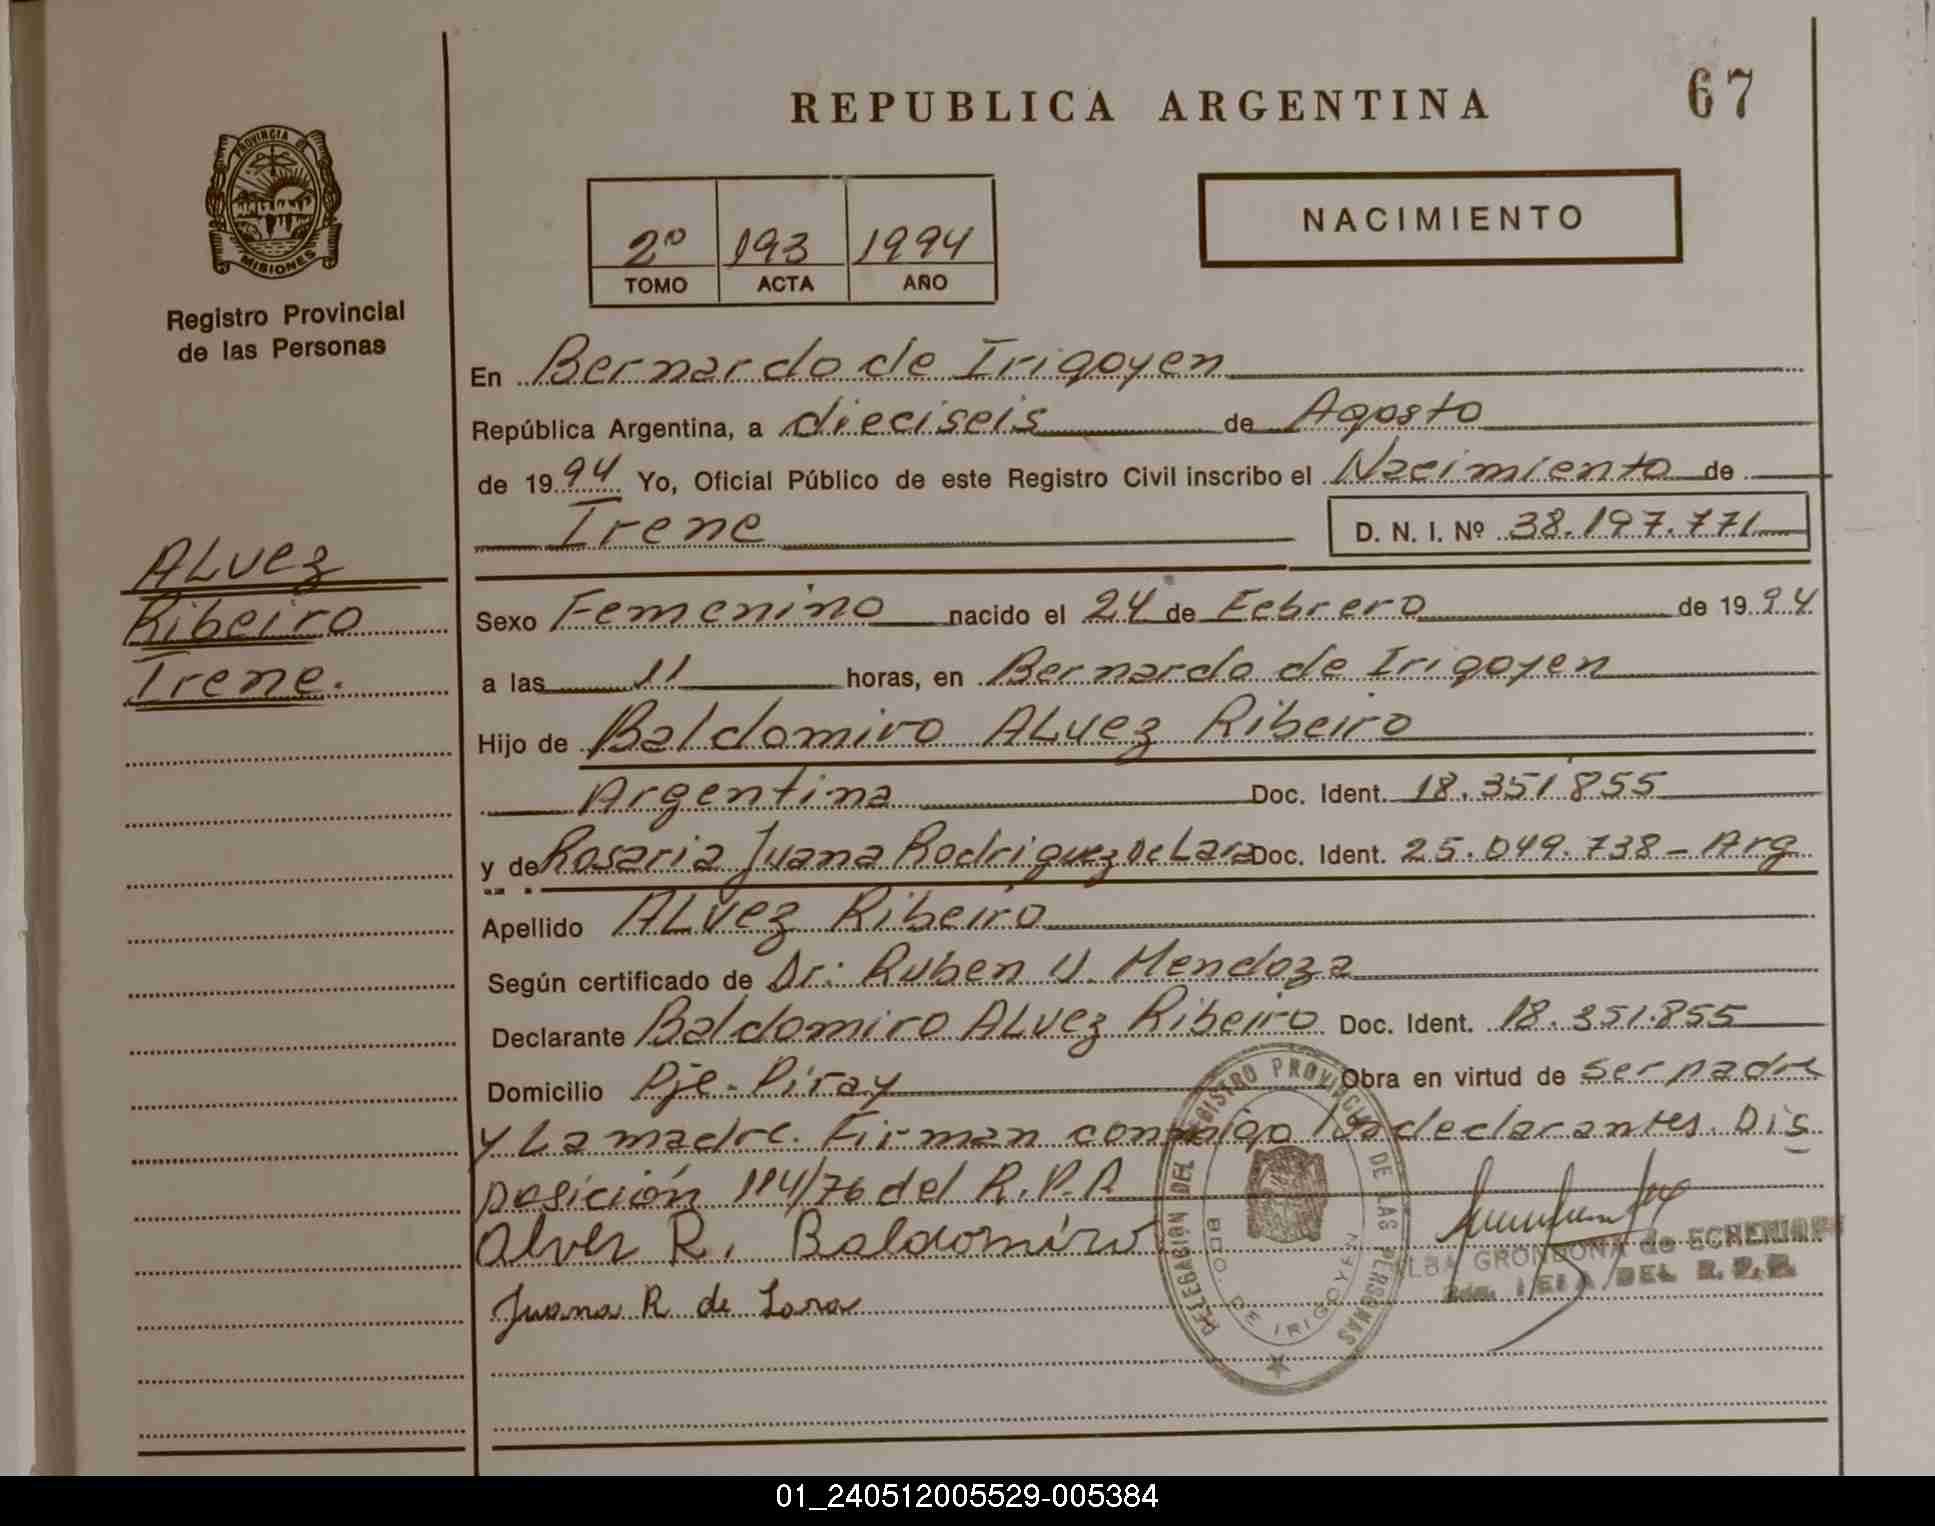 REPUBLICA ARGENTINA
67
PROVINCIA DE
MISIONES
Registro Provincial
de las Personas
2º 193 1994
TOMO ACTA AÑO
NACIMIENTO
En Bernardo de Irigoyen
República Argentina, a dieciseis de Agosto
de 1994 Yo, Oficial Público de este Registro Civil inscribo el Nacimiento de
Irene D. N. I. Nº 38.197.771
ALvez
Ribeiro
Irene.
Sexo Femenino nacido el 24 de Febrero de 1994
a las 11 horas, en Bernardo de Irigoyen
Hijo de Baldomiro ALvez Ribeiro
Argentina Doc. Ident. 18.351.855
y de Rosaria Juana Rodriguez De Lara Doc. Ident. 25.049.738 - Arg
Apellido ALvez Ribeiro
Según certificado de Dr: Ruben V. Mendoza
Declarante Baldomiro ALvez Ribeiro Doc. Ident. 18.351.855
Domicilio Pje- Piray Obra en virtud de ser padre
y La madre. Firman conmigo los declarantes. Dis
posición 114/76 del R.P.P
Alvez R. Baldomiro
Juana R de Lara
DELEGACION DEL REGISTRO PROVINCIAL DE LAS PERSONAS
BDO. DE IRIGOYEN
ELBA GRONDONA de
DEL R.P.P.
01_240512005529-005384